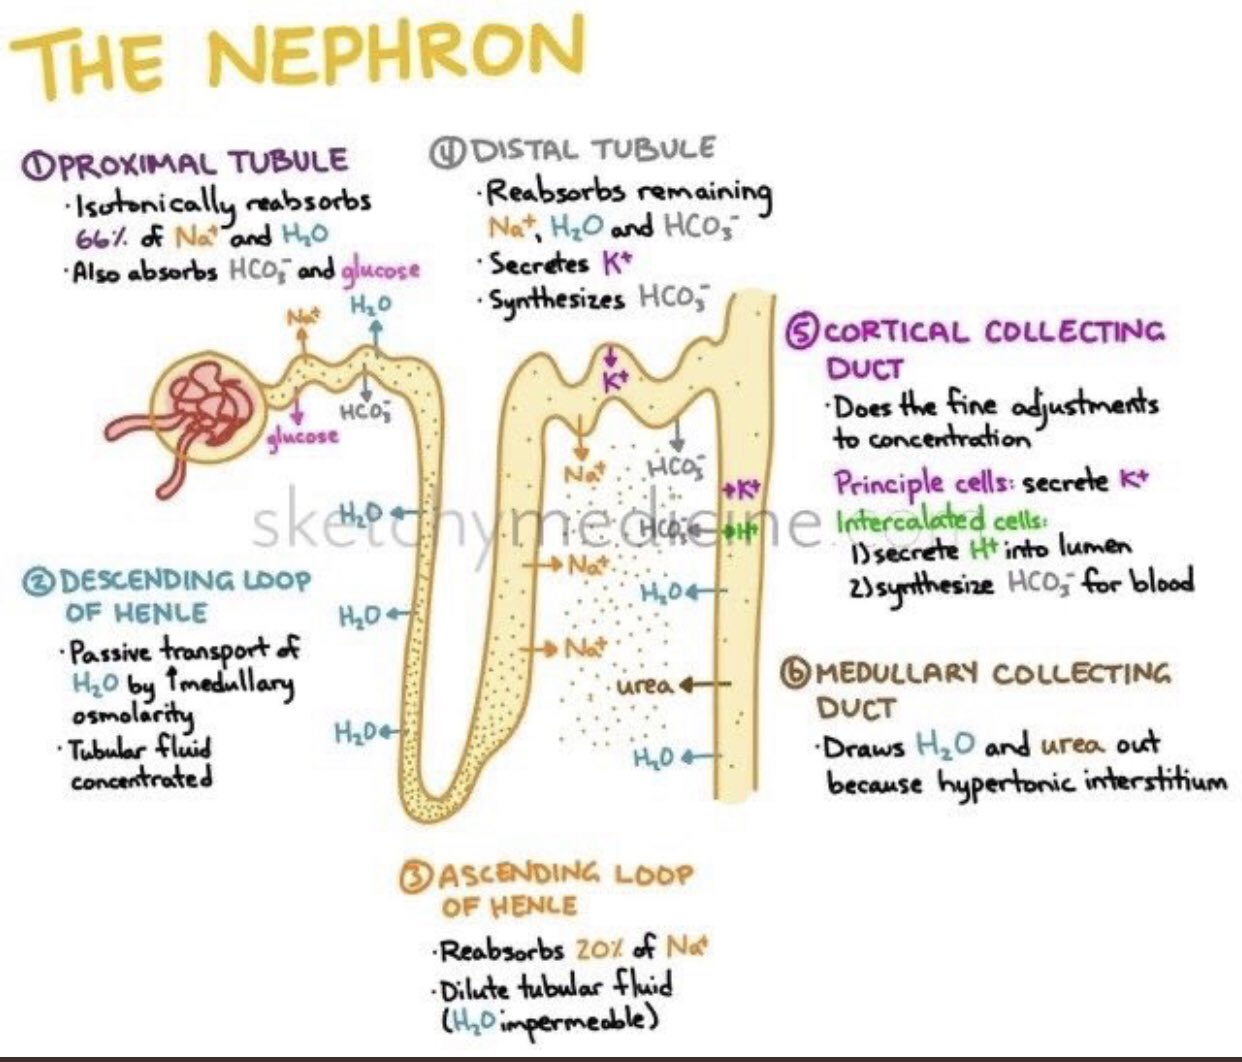 THE NEPHRON
①PROXIMAL TUBULE
·Isotonically reabsorbs
66% of Na⁺ and H₂O
·Also absorbs HCO₃⁻ and glucose
④DISTAL TUBULE
·Reabsorbs remaining
Na⁺, H₂O and HCO₃⁻
·Secretes K⁺
·Synthesizes HCO₃⁻
Na⁺
H₂O
glucose
HCO₃⁻
K⁺
Na⁺
HCO₃⁻
⑤CORTICAL COLLECTING
DUCT
·Does the fine adjustments
to concentration
Principle cells: secrete K⁺
Intercalated cells:
1)secrete H⁺ into lumen
2)synthesize HCO₃⁻ for blood
K⁺
HCO₃⁻
H⁺
sketchymedicine.com
H₂O
H₂O
H₂O
Na⁺
Na⁺
H₂O
urea
H₂O
②DESCENDING LOOP
OF HENLE
·Passive transport of
H₂O by ↑medullary
osmolarity
·Tubular fluid
concentrated
⑥MEDULLARY COLLECTING
DUCT
·Draws H₂O and urea out
because hypertonic interstitium
③ASCENDING LOOP
OF HENLE
·Reabsorbs 20% of Na⁺
·Dilute tubular fluid
(H₂O impermeable)